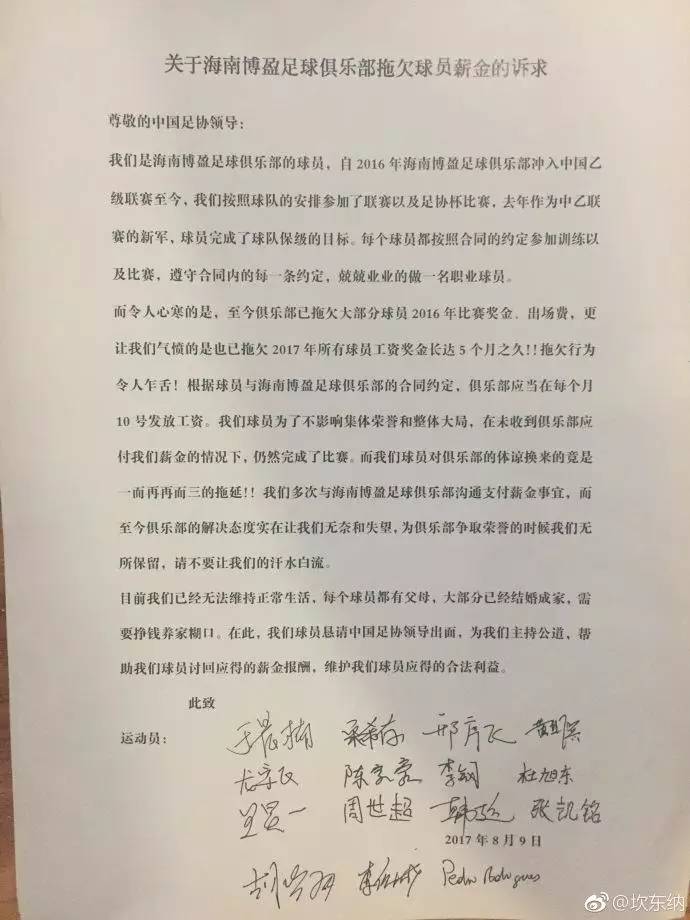 关于海南博盈足球俱乐部拖欠球员薪金的诉求
尊敬的中国足协领导：
我们是海南博盈足球俱乐部的球员，自 2016 年海南博盈足球俱乐部冲入中国乙
级联赛至今，我们按照球队的安排参加了联赛以及足协杯比赛，去年作为中乙联
赛的新军，球员完成了球队保级的目标。每个球员都按照合同的约定参加训练以
及比赛，遵守合同内的每一条约定，兢兢业业的做一名职业球员。
而令人心寒的是，至今俱乐部已拖欠大部分球员 2016 年比赛奖金、出场费，更
让我们气愤的是也已拖欠 2017 年所有球员工资奖金长达 5 个月之久!! 拖欠行为
令人乍舌！根据球员与海南博盈足球俱乐部的合同约定，俱乐部应当在每个月
10 号发放工资。我们球员为了不影响集体荣誉和整体大局，在未收到俱乐部应
付我们薪金的情况下，仍然完成了比赛。而我们球员对俱乐部的体谅换来的竟是
一而再再而三的拖延!! 我们多次与海南博盈足球俱乐部沟通支付薪金事宜，而
至今俱乐部的解决态度实在让我们无奈和失望，为俱乐部争取荣誉的时候我们无
所保留，请不要让我们的汗水白流。
目前我们已经无法维持正常生活，每个球员都有父母，大部分已经结婚成家，需
要挣钱养家糊口。在此，我们球员恳请中国足协领导出面，为我们主持公道，帮
助我们球员讨回应得的薪金报酬，维护我们球员应得的合法利益。
此致
运动员：
李钢 杜旭东
周世超 张凯铭
2017 年 8 月 9 日
Pedro Rodrigues
@坎东纳